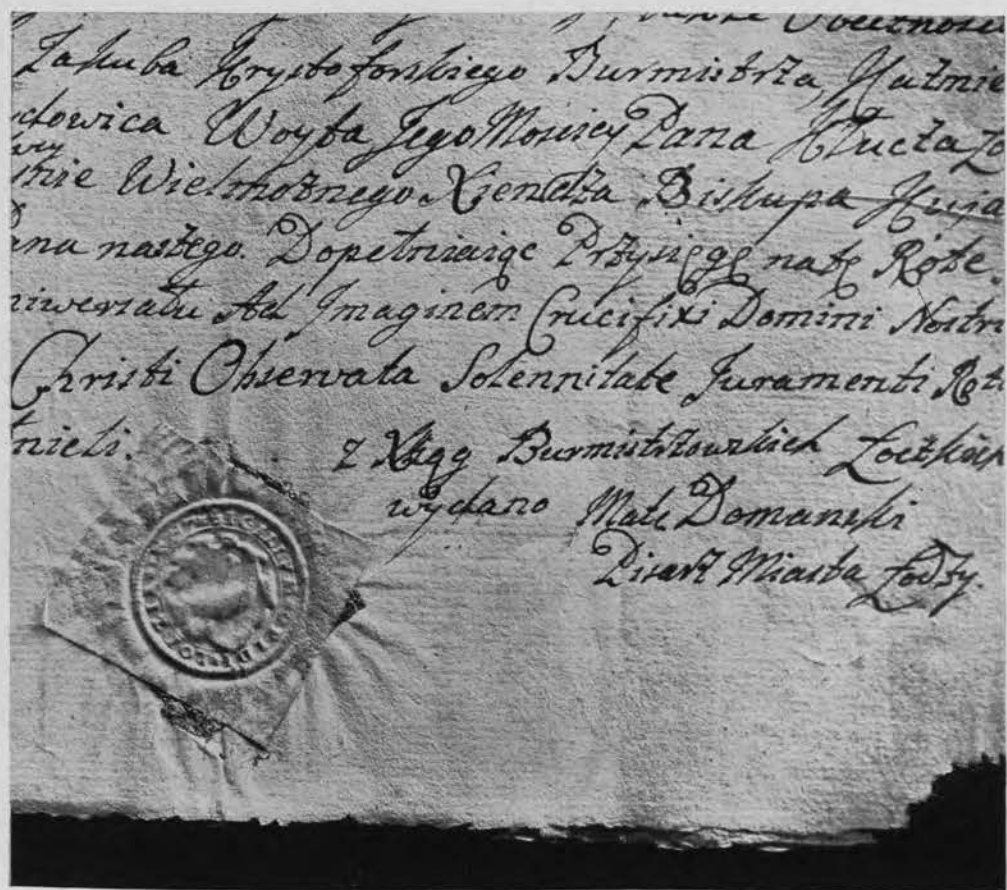 Obecnosci
Jakuba Krystoforskiego Burmistrza, Kazmie
dowica Woyta Jego Mosciey Pana Klucza
Wielmoznego Xiendza Biskupa Kuia
Pana naszego. Dopełniaiąc Przysięgę natę Rotę.
niwersału Ad Imaginem Crucifixi Domini Nostri
Christi Observata Solennitate Juramenti Rot
łnieli. z Xsiąg Burmistrzowskich Łodzkich
wydano Mate Domanski
Pisarz Miasta Łodzy.